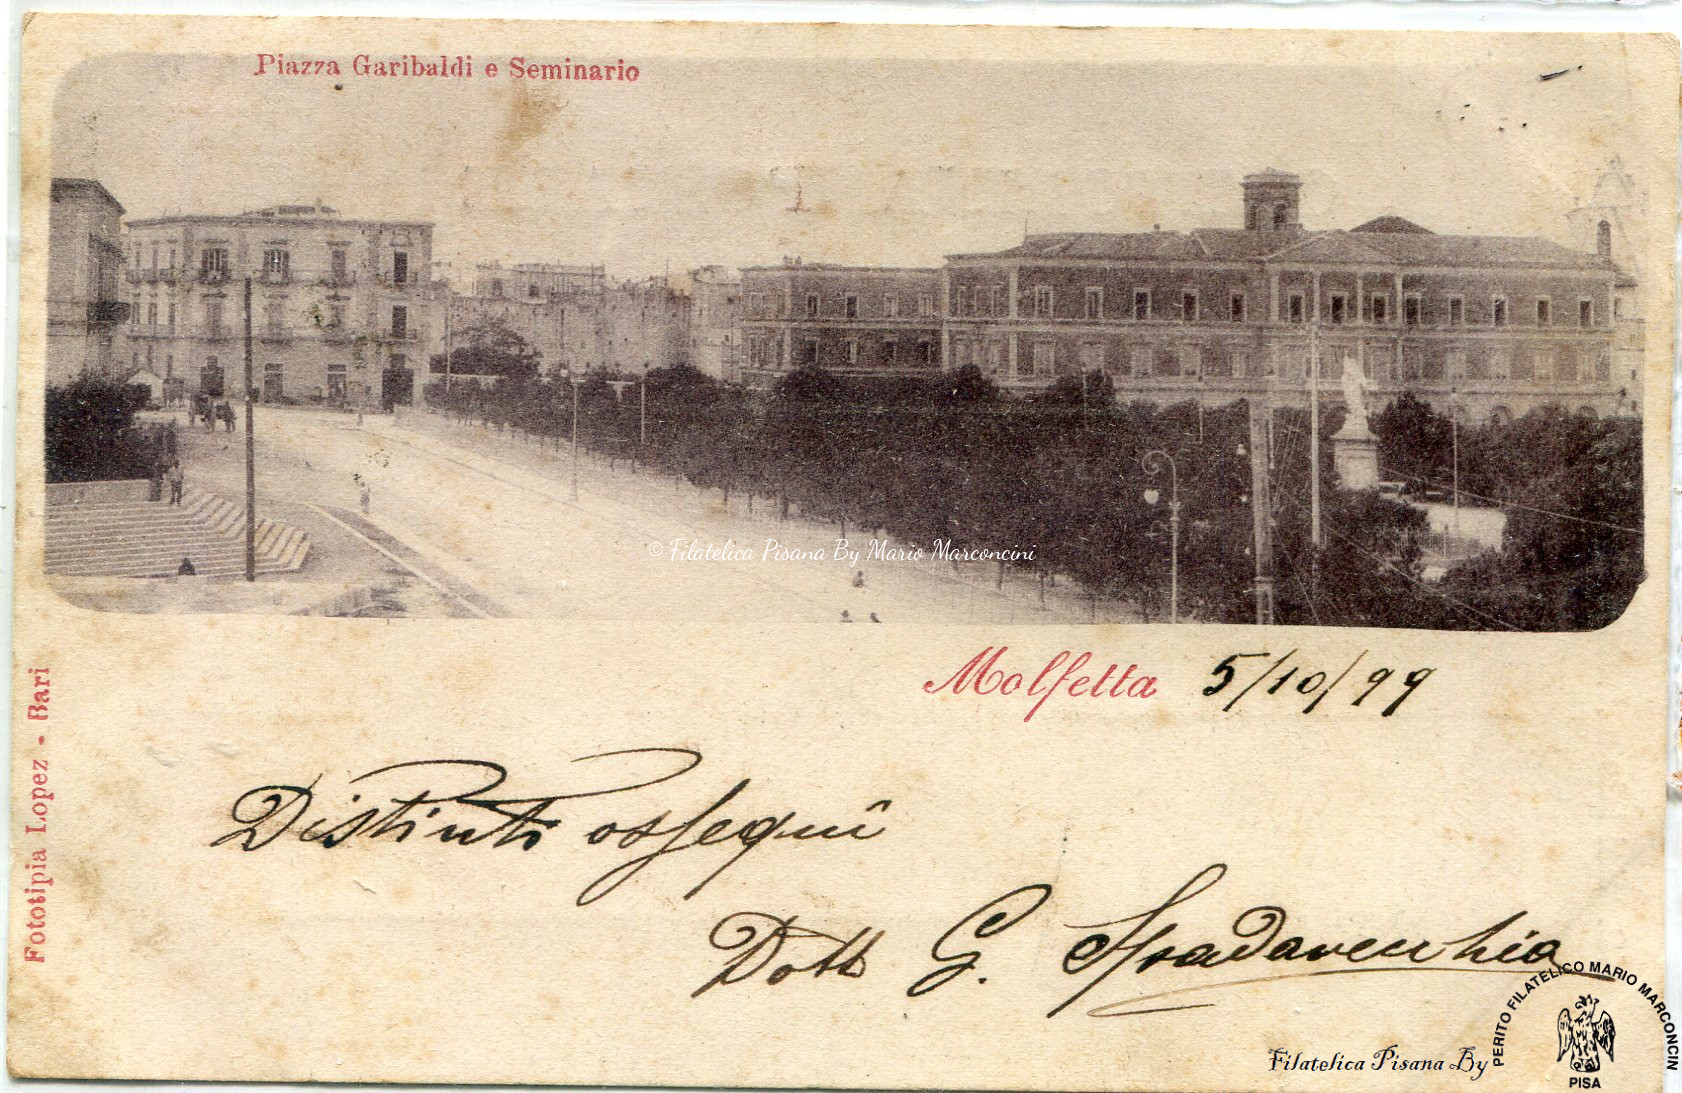 Piazza Garibaldi e Seminario
© Filatelica Pisana By Mario Marconcini
Molfetta 5/10/99
Fototipia Lopez - Bari
Distinti ossequii
Dott G. Spadavecchia
Filatelica Pisana By
PERITO FILATELICO MARIO MARCONCIN
PISA